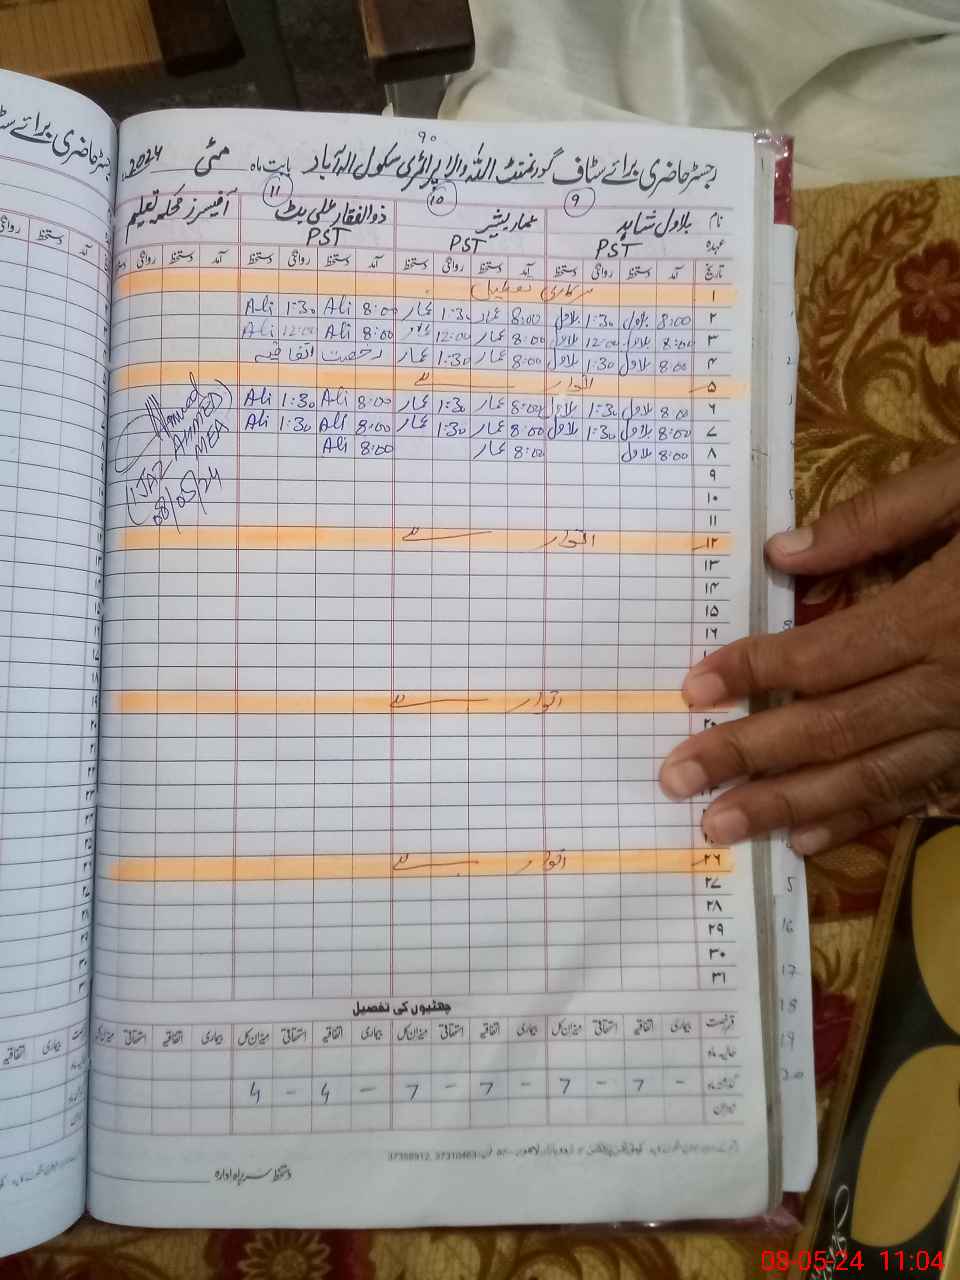 ۹۰
رجسٹر حاضری برائے سٹاف گورنمنٹ اللہ والا پرائمری سکول الہ آباد بابت ماہ مئی 2024
9 10 11
نام بلاول شاہد عمار بشیر ذوالفقار علی بٹ آفیسرز محکمہ تعلیم
عہدہ PST PST PST
تاریخ آمد دستخط روانگی دستخط آمد دستخط روانگی دستخط آمد دستخط روانگی دستخط آمد دستخط روانگی
۱ سرکاری تعطیل
۲ 8:00 بلاول 1:30 بلاول 8:00 عمار 1:30 عمار 8:00 Ali 1:30 Ali
۳ 8:00 بلاول 12:00 بلاول 8:00 عمار 12:00 عمار 8:00 Ali 12:00 Ali
۴ 8:00 بلاول 1:30 بلاول 8:00 عمار 1:30 عمار رخصت اتفاقیہ
۵ اتوار
۶ 8:00 بلاول 1:30 بلاول 8:00 عمار 1:30 عمار 8:00 Ali 1:30 Ali
۷ 8:00 بلاول 1:30 بلاول 8:00 عمار 1:30 عمار 8:00 Ali 1:30 Ali
۸ 8:00 بلاول 8:00 عمار 8:00 Ali
(IJAZ AHMED)
MEA
08/05/24
۹
۱۰
۱۱
۱۲ اتوار
۱۳
۱۴
۱۵
۱۶
اتوار
۲۶ اتوار
۲۷
۲۸
۲۹
۳۰
۳۱
چھٹیوں کی تفصیل
قسم رخصت بیماری اتفاقیہ استحقاقی میزان کل بیماری اتفاقیہ استحقاقی میزان کل بیماری اتفاقیہ استحقاقی میزان کل بیماری اتفاقیہ استحقاقی
حالیہ ماہ
گذشتہ ماہ - 7 - 7 - 7 - 7 - 4 - 4
میزان
37310463, 37358912
دستخط سربراہ ادارہ
08-05-24 11:04